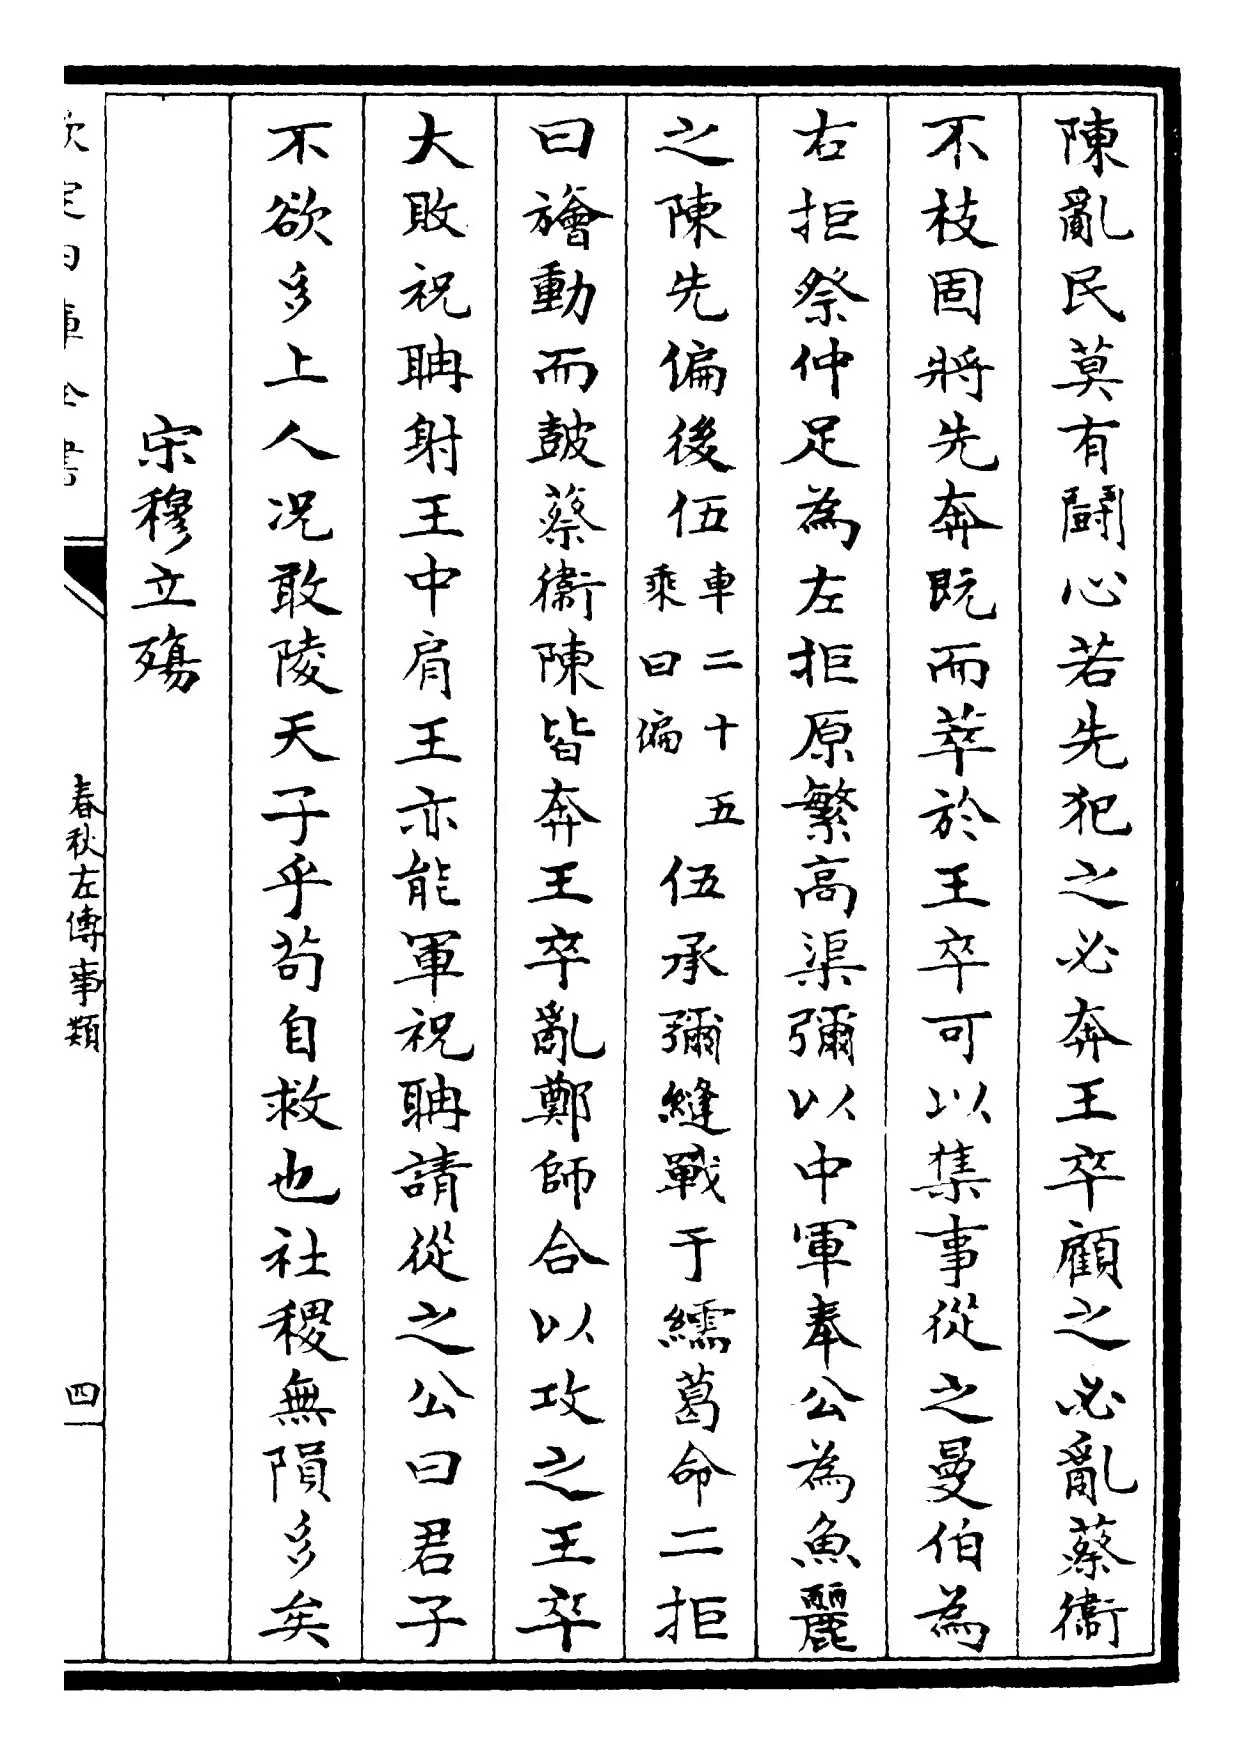 陳亂民莫有鬪心若先犯之必奔王卒顧之必亂蔡衞
不枝固將先奔既而萃於王卒可以集事從之曼伯為
右拒祭仲足為左拒原繁高渠彌以中軍奉公為魚麗
之陳先偏後伍車二十五乘曰偏伍承彌縫戰于繻葛命二拒
曰旝動而鼓蔡衞陳皆奔王卒亂鄭師合以攻之王卒
大敗祝聃射王中肩王亦能軍祝聃請從之公曰君子
不欲多上人況敢陵天子乎茍自救也社稷無隕多矣
宋穆立殤
欽定四庫全書
春秋左傳事類
四